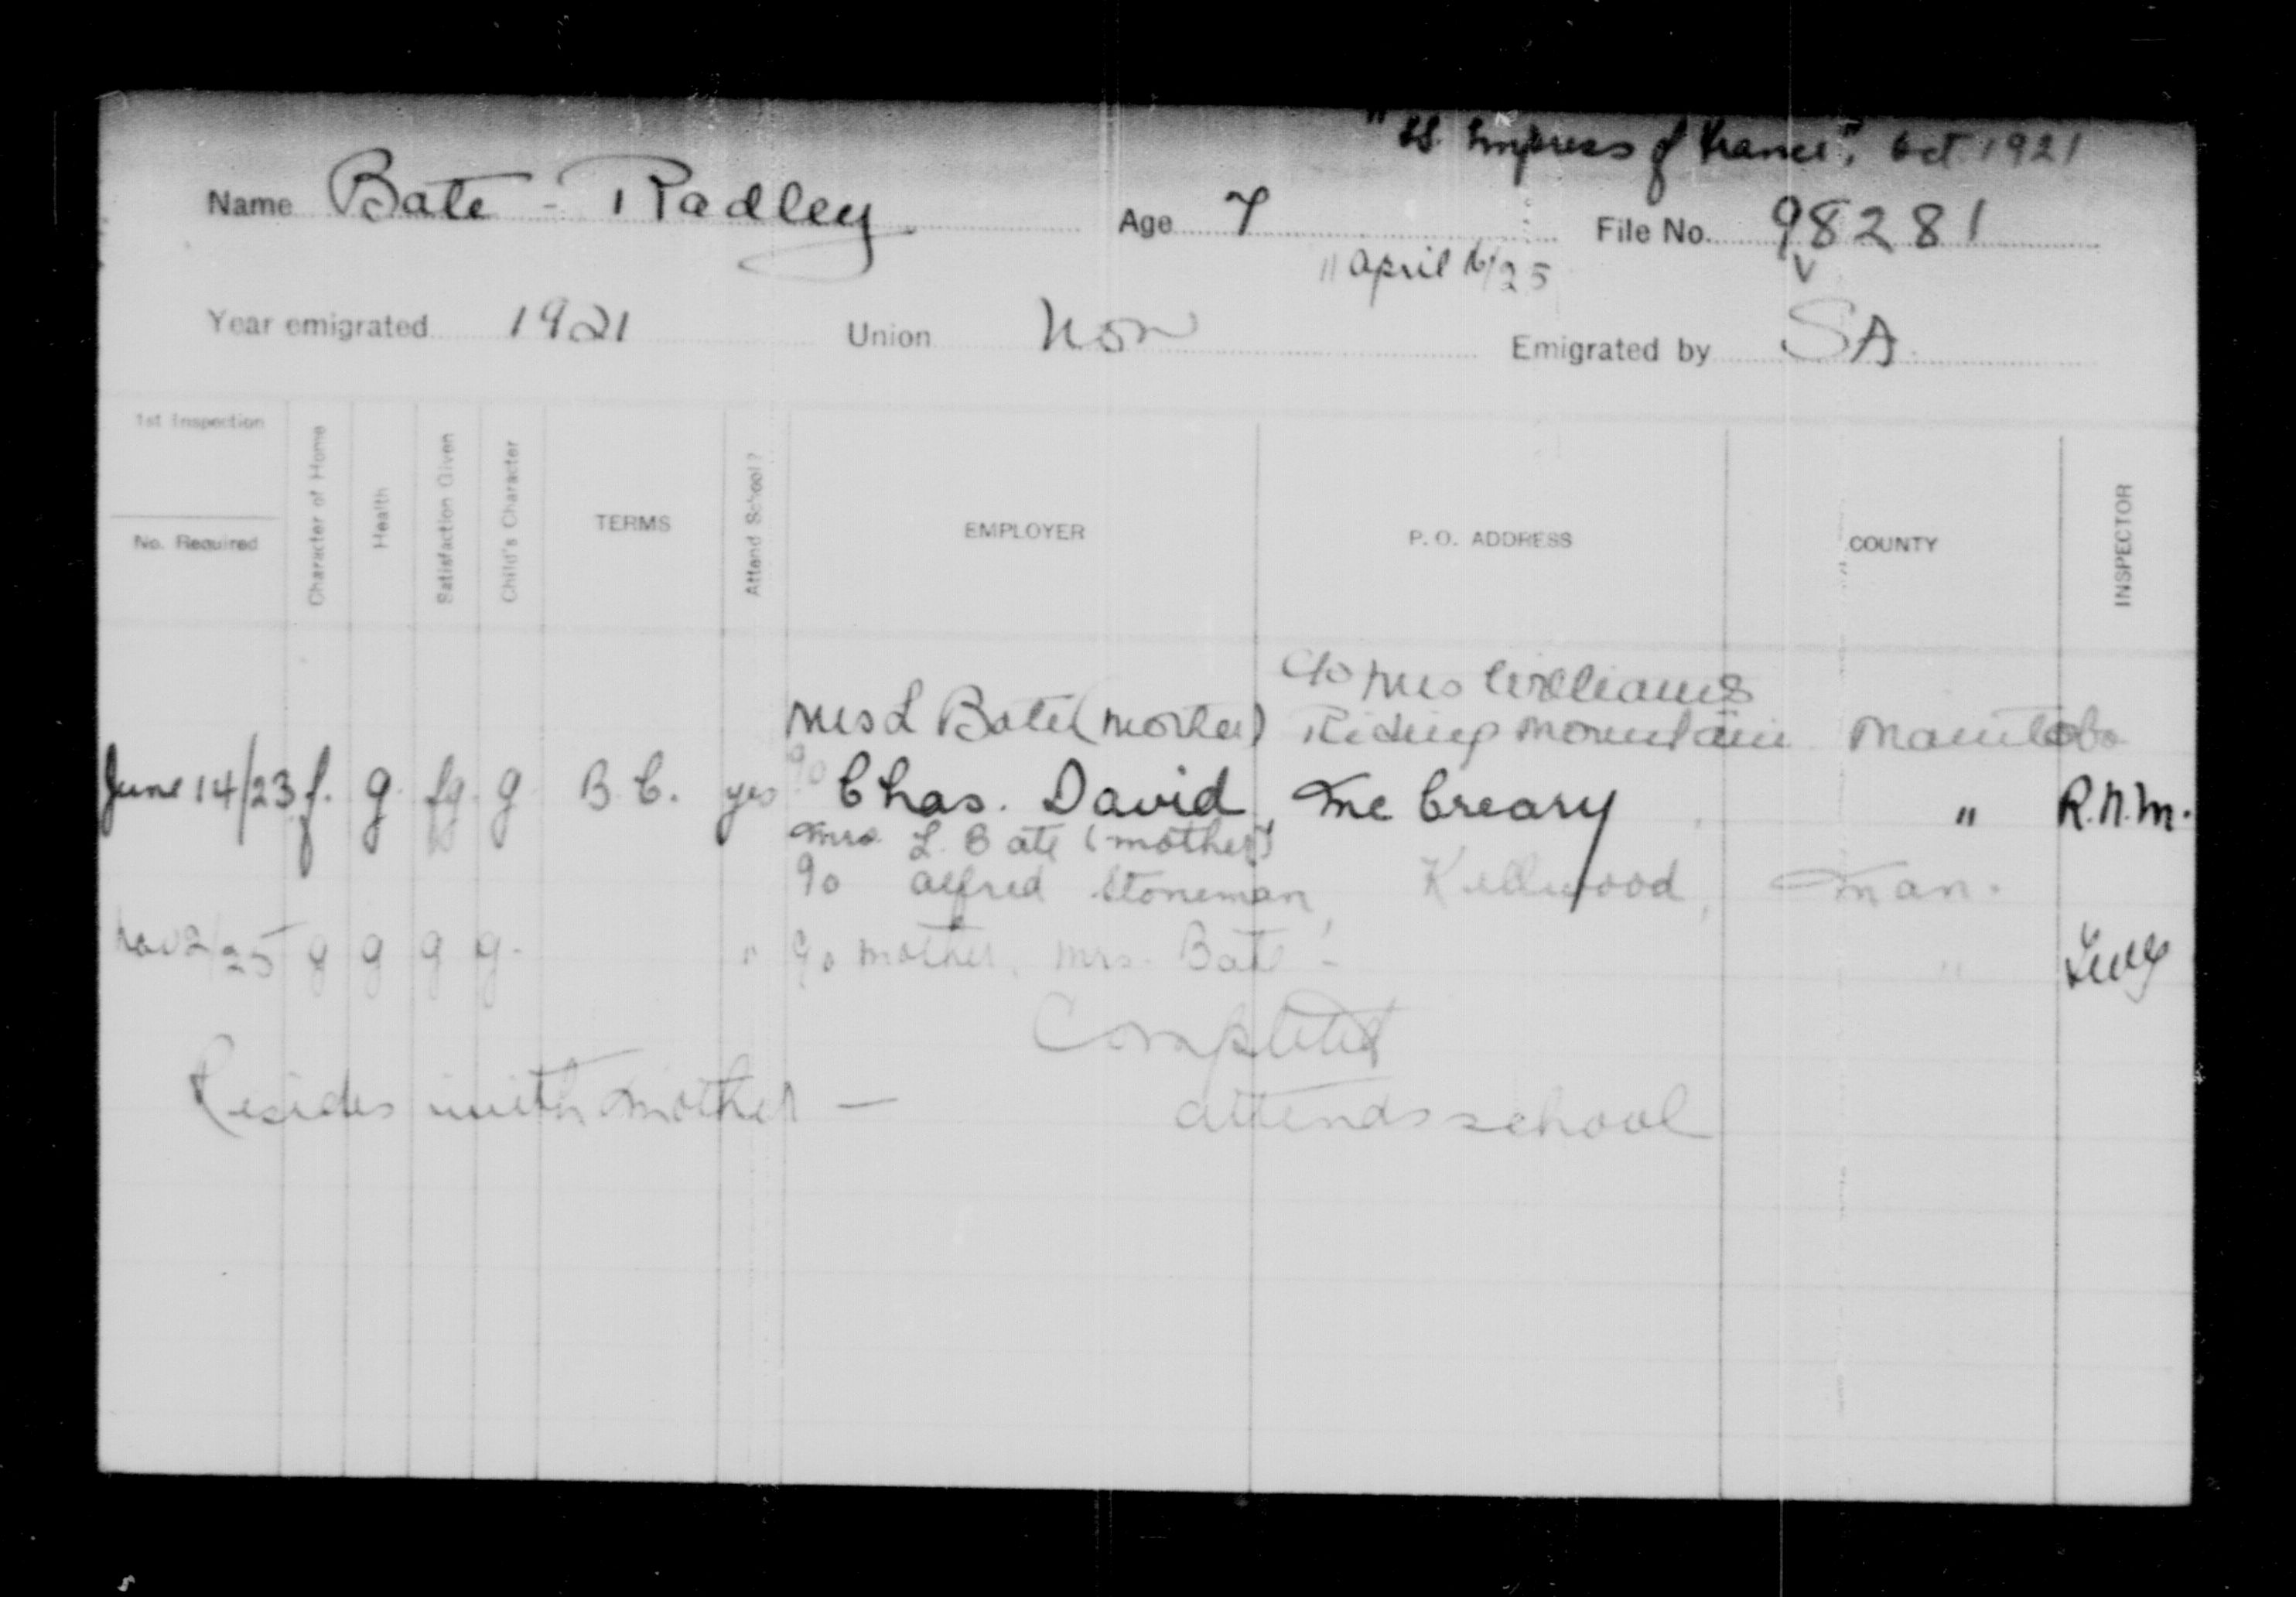 "SS. Empress of France", Oct 1921
Name Bate - Radley Age 7 File No. 98281
11 April 16/25
Year emigrated 1921 Union Non Emigrated by SA
1st Inspection
No. Required
Character of Home
Health
Satisfaction Given
Child's Character
TERMS
Attend School?
EMPLOYER
P. O. ADDRESS
COUNTY
INSPECTOR
c/o Mrs Williams
Mrs L Bate (Mother) Riding Mountain Manitoba
June 14/23 f. g. fg. g B. C. yes c/o Chas. David, McCreary " R.N.M.
Mrs. L. Bate (mother)
c/o Alfred Stoneman, Kellwood, Man.
Nov 2/25 g g g g. " c/o mother, Mrs. Bate - "
Completed
Resides with mother — attends school